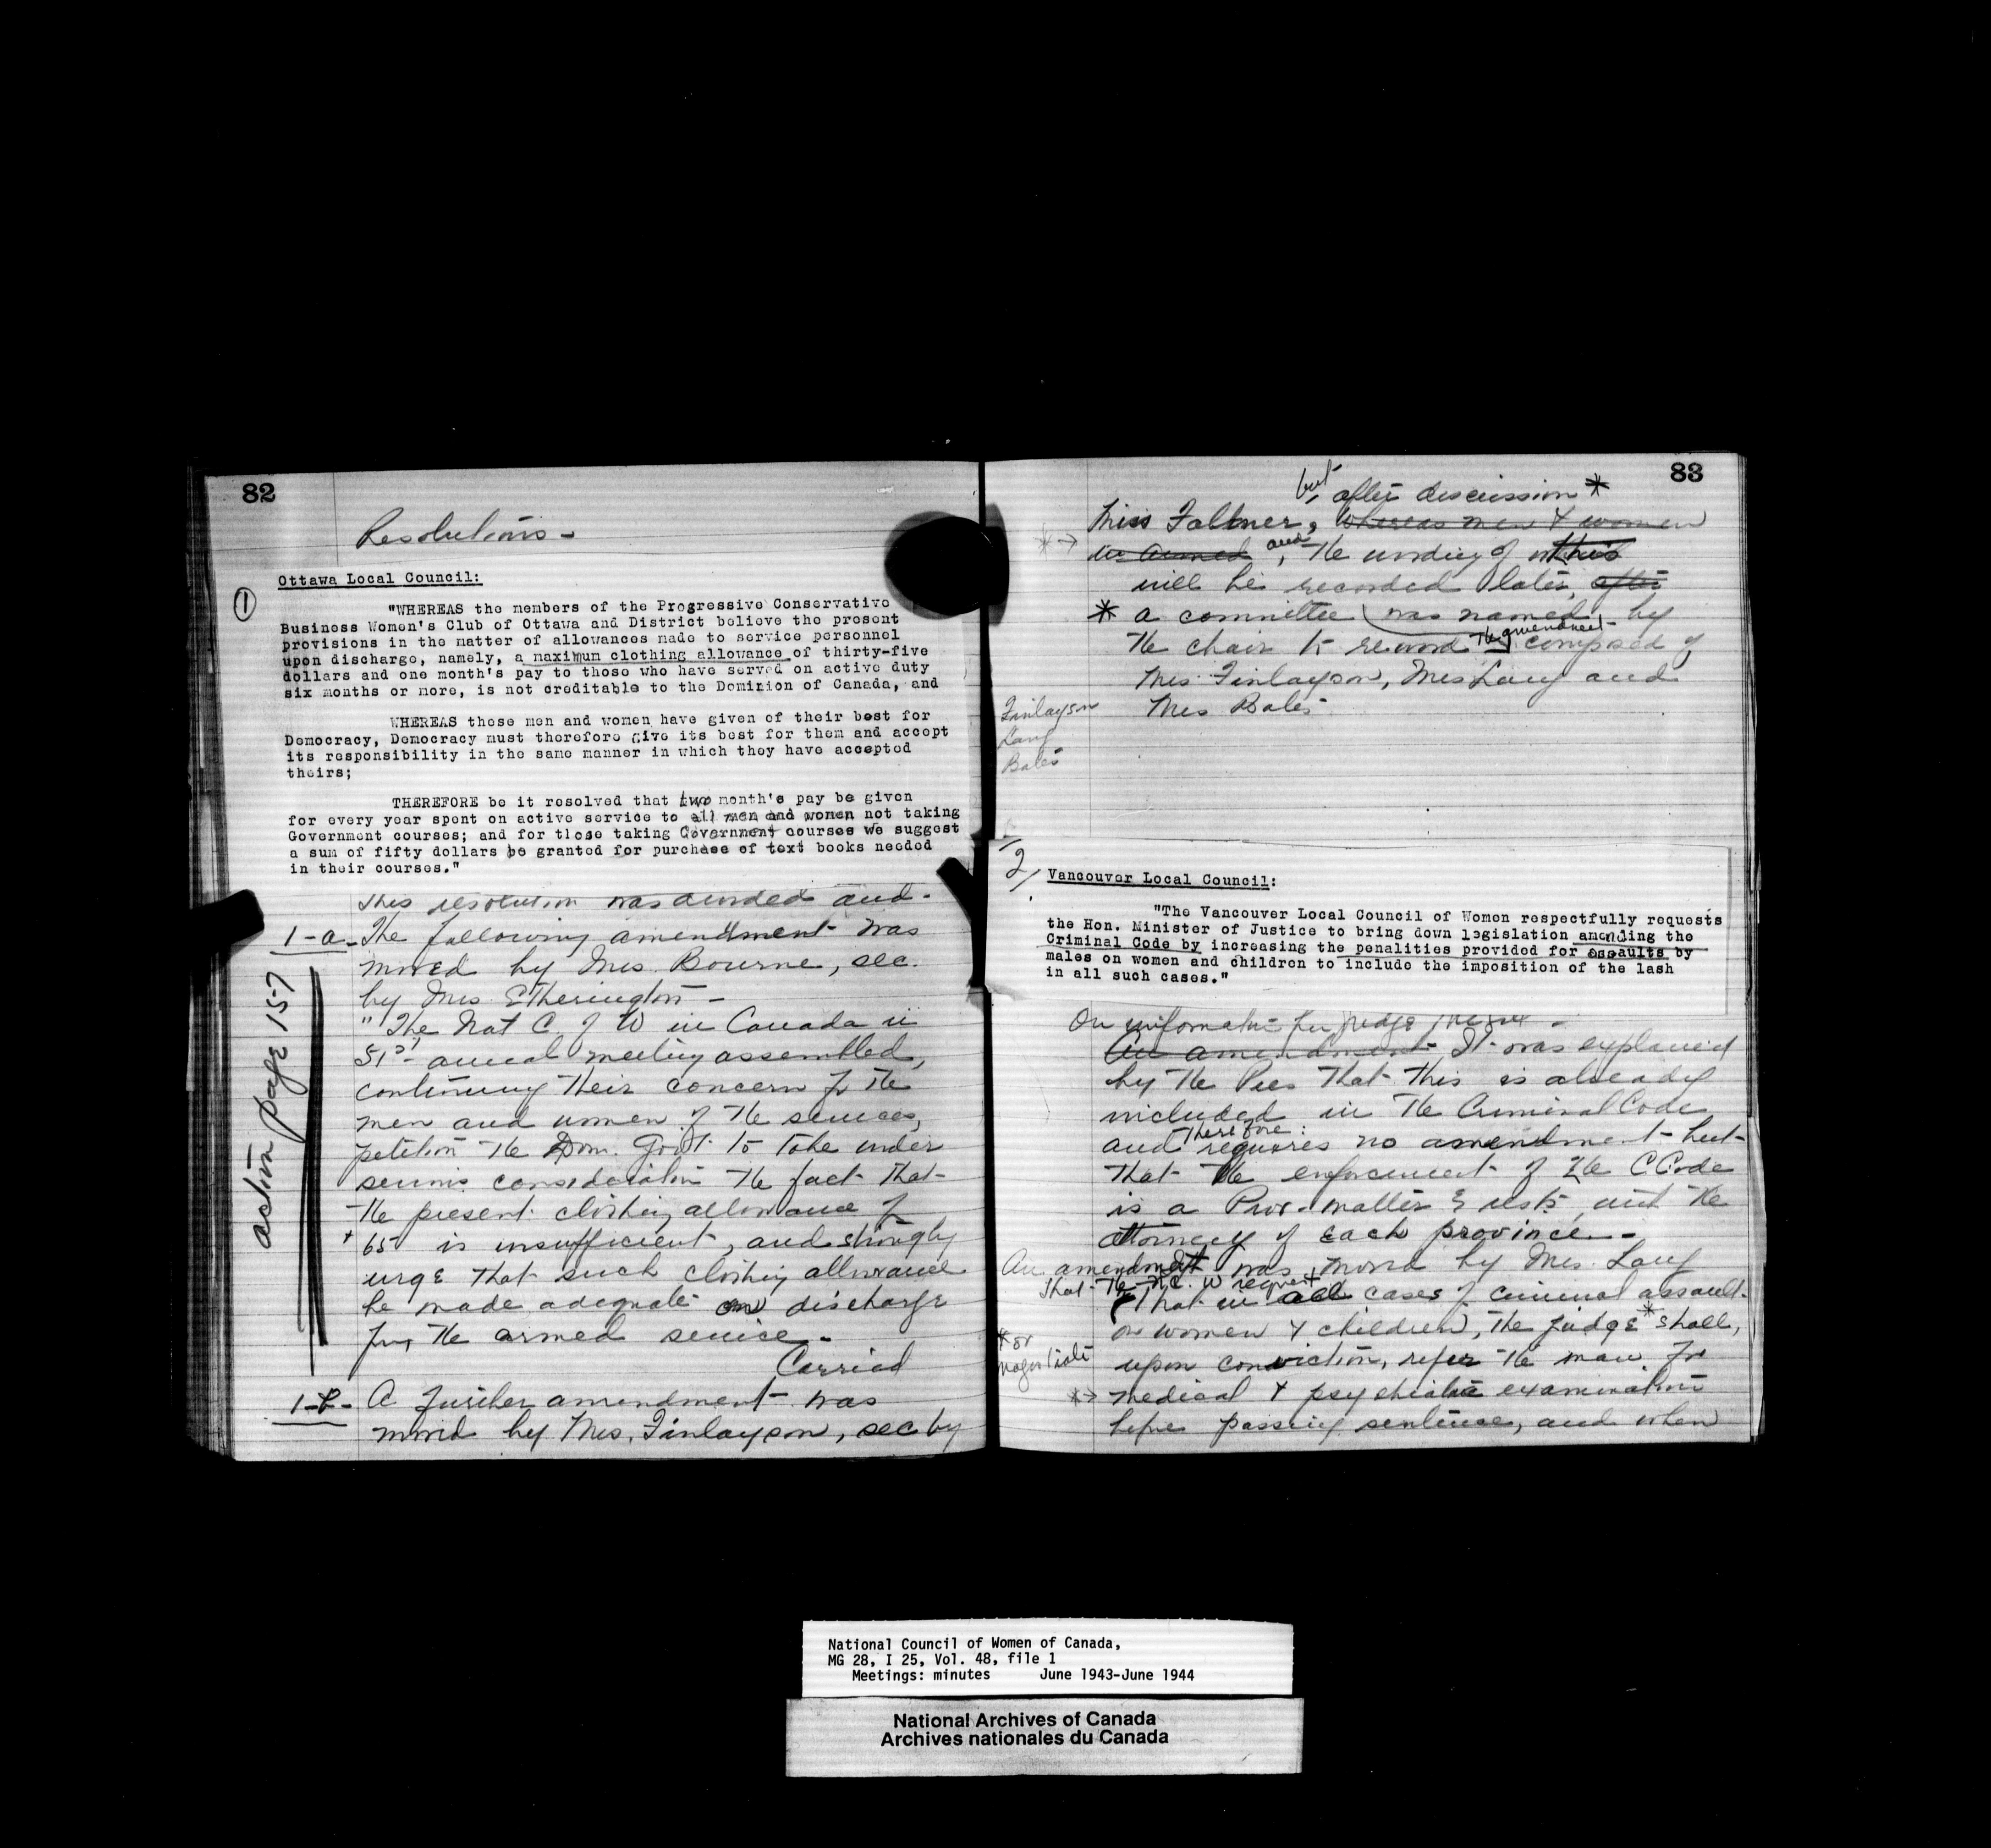 82
Resolutions -
①
Ottawa Local Council:
"WHEREAS the members of the Progressive Conservative
Business Women's Club of Ottawa and District believe the present
provisions in the matter of allowances made to service personnel
upon discharge, namely, a maximum clothing allowance of thirty-five
dollars and one month's pay to those who have served on active duty
six months or more, is not creditable to the Dominion of Canada, and
WHEREAS these men and women have given of their best for
Democracy, Democracy must therefore give its best for them and accept
its responsibility in the same manner in which they have accepted
theirs;
THEREFORE be it resolved that two month's pay be given
for every year spent on active service to all men and women not taking
Government courses; and for those taking Government courses we suggest
a sum of fifty dollars be granted for purchase of text books needed
in their courses."
This resolution was and
1-a- The following amendment was
moved by Mrs. Bourne, sec.
by Mrs Etherington -
"The Nat C. of W in Canada in
51st annual meeting assembled,
continuing their concern for the
men and women of the services,
petition the Dom. Gov't to take under
serious consideration the fact that
the present clothing allowance of
65 is insufficient, and strongly
urge that such clothing allowance
be made adequate on discharge
from the armed service -
Carried
action page 157
1-b- A further amendment was
moved by Mrs. Finlayson, sec by
83
but after discussion *
Miss Falkner, whereas men & women
in armed, and the wording of this
will be recorded later, after
* a committee was named by
the chair to reword the amendment composed of
Mrs Finlayson, Mrs Lang and
Mrs Bales
Finlayson
Lang
Bales
2/
Vancouver Local Council:
"The Vancouver Local Council of Women respectfully requests
the Hon. Minister of Justice to bring down legislation amending the
Criminal Code by increasing the penalities provided for assaults by
males on women and children to include the imposition of the lash
in all such cases."
On information per Judge
An amendment It was explained
by the Pres that this is already
included in the Criminal Code
and therefore requires no amendment but
that the enforcement of the C Code
is a Prov. matter & rests with the
attorney of each province. -
An amendment was moved by Mrs. Lang
That the N.C. W request
That in all cases of criminal assault
on women & children, the judge * shall,
* or
magistrate
upon conviction, refer the man for
*→ medical & psychiatric examination
before passing sentence, and when
National Council of Women of Canada,
MG 28, I 25, Vol. 48, file 1
Meetings: minutes June 1943-June 1944
National Archives of Canada
Archives nationales du Canada